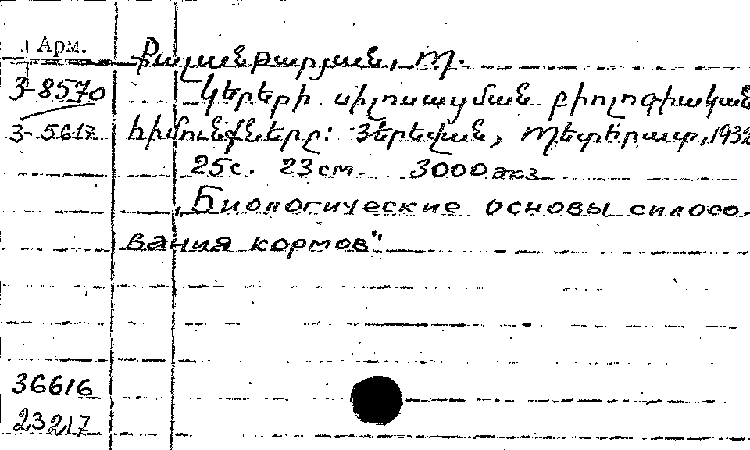 Арм.
Քալանթարյան, Մ.
3-8570
Կերերի սիլոսացման բիոլոգիական
3-5617
հիմունքները: Յերեվան, Պետհրատ, 1932
25с. 23см 3000экз
„Биологические основы силосо-
вания кормов"
36616
23217